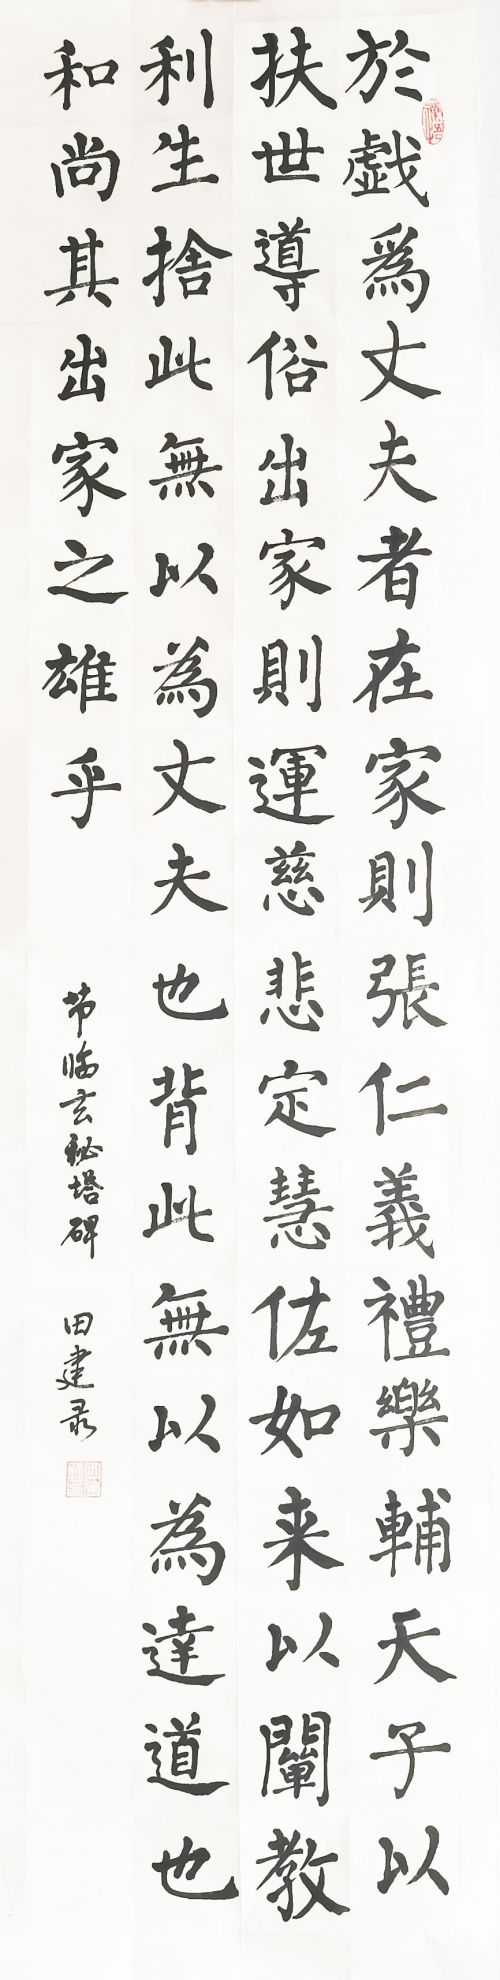 於戲爲丈夫者在家則張仁義禮樂輔天子以
扶世導俗出家則運慈悲定慧佐如来以闡教
利生捨此無以為丈夫也背此無以為達道也
和尚其出家之雄乎
节临玄秘塔碑 田建录